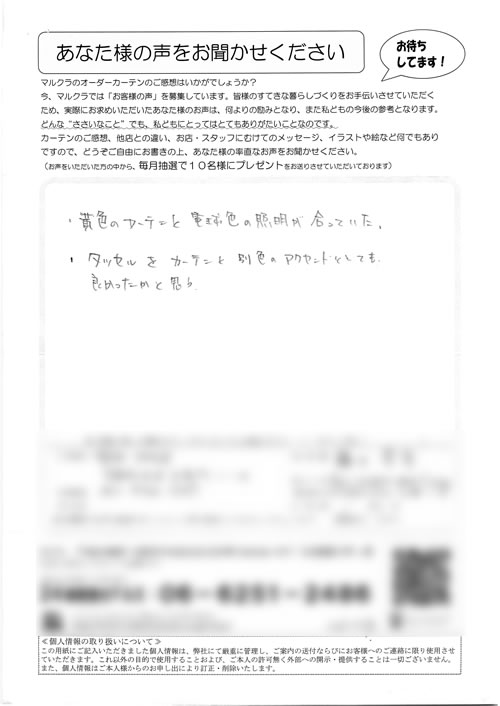 あなた様の声をお聞かせください
お待ち
してます！
マルクラのオーダーカーテンのご感想はいかがでしょうか？
今、マルクラでは「お客様の声」を募集しています。皆様のすてきな暮らしづくりをお手伝いさせていただく
ため、実際にお求めいただいたあなた様のお声は、何よりの励みとなり、また私どもの今後の参考となります。
どんな“ささいなこと”でも、私どもにとってはとてもありがたいことなのです。
カーテンのご感想、他店との違い、お店・スタッフにむけてのメッセージ、イラストや絵など何でもあり
ですので、どうぞご自由にお書きの上、あなた様の率直なお声をお聞かせください。
（お声をいただいた方の中から、毎月抽選で１０名様にプレゼントをお送りさせていただいております）
・黄色のカーテンと電球色の照明が合っていた。
・タッセルをカーテンと別色のアクセントとしても
良かったかと思う
≪個人情報の取り扱いについて≫
この用紙にご記入いただきました個人情報は、弊社にて厳重に管理し、ご案内の送付ならびにお客様へのご連絡に限り使用させ
ていただきます。これ以外の目的で使用することおよび、ご本人の許可無く外部への開示・提供することは一切ございません。
また、個人情報はご本人様からのお申し出により訂正・削除いたします。